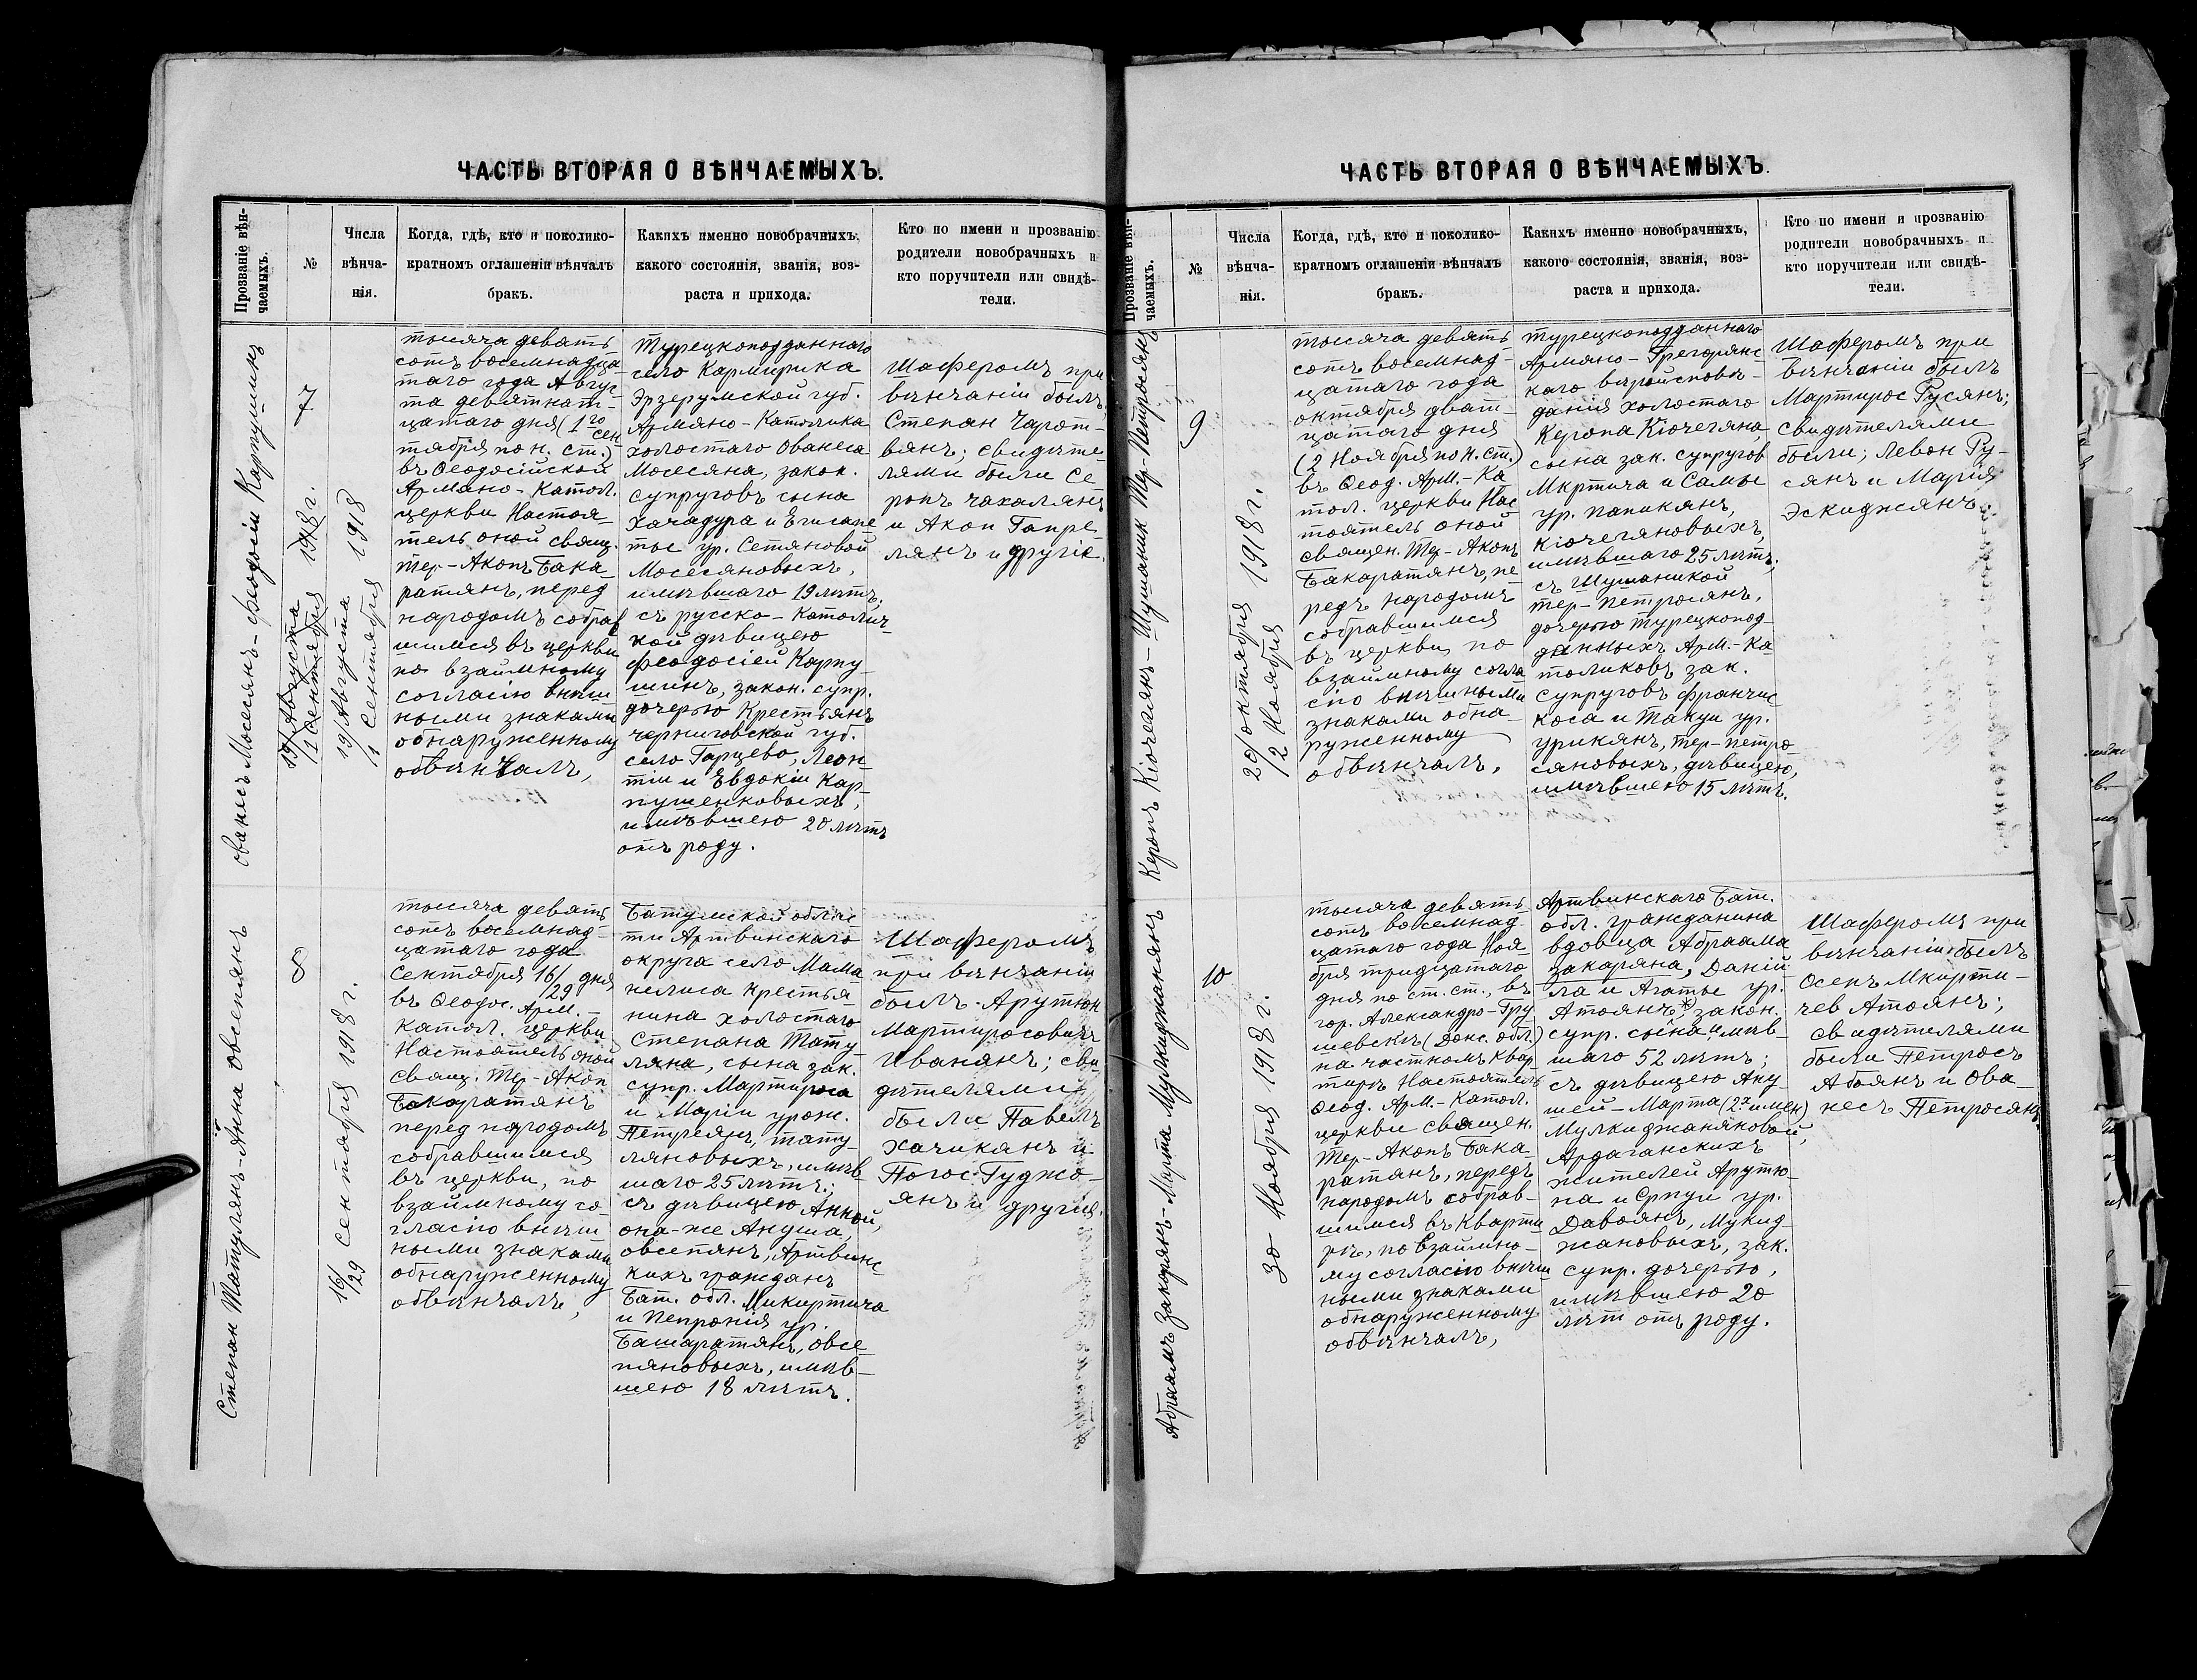 ЧАСТЬ ВТОРАЯ О ВѢНЧАЕМЫХЪ.
Прозваніе вѣн-
чаемыхъ.
№
Числа
вѣнча-
нія.
Когда, гдѣ, кто и поколико-
кратномъ оглашеніи вѣнчалъ
бракъ.
Какихъ именно новобрачныхъ,
какого состоянія, званія, воз-
раста и прихода.
Кто по имени и прозванію
родители новобрачныхъ и
кто поручители или свидѣ-
тели.
Ованесъ Мосесянъ - Феодосіи Карпушинъ
7
19/Августа
/1 Сентября 1918 г.
19/Августа
1 Сентября 1918
тысяча девять
сотъ восемнадца
таго года Авгус
та девятнат-
цатаго дня (1го сен
тября по н. ст.)
въ Ѳеодосійской
Армяно-Катол.
церкви Настоя-
тель оной свящ.
Тер-Акопъ Бака-
ратянъ, перед
народомъ собрав
шимся въ церкви
по взаимному
согласію внѣш
ными знаками
обнаруженному
обвѣнчалъ,
Турецкоподданнаго
село Кармирика
Эрзерумской губ.
Армяно-Католика
холостаго Ованеса
Мосесяна, закон.
супруговъ сына
Хачадура и Егисапе
тье ур. Сетяновой
Мосесяновыхъ,
имѣвшаго 19 лѣтъ,
съ русско-католич-
кой дѣвицею
Феодосіей Карпу-
шинъ, закон. супр.
дочерью Крестьянъ
черниговской губ.
село Гарцево, Леон
тіи и Евдокіи Кар-
пушенковыхъ,
имѣвшею 20 лѣтъ
отъ роду.
Шаферомъ при
вѣнчаніи былъ
Степан Чарот-
вянъ; свидѣте-
лями были Се
ропъ Чахалянъ
и Акоп Гапре-
лянъ и другіе.
Степан Татулянъ - Анна Овсепянъ
8
16/
29 Сентября 1918 г.
тысяча девять
сотъ восемнад-
цатаго года
Сентября 16/29 дня
въ Ѳеодос. Арм.-
Катол. церкви
Настоятель оной
свящ. Тер-Акоп
Бакаратянъ
перед народомъ
собравшимся
въ церкви, по
взаимному со
гласію внѣш
ными знаками
обнаруженному
обвѣнчалъ,
Батумской облас
ти Артвинскаго
округа село Мама
нелиса крестья
нина холостаго
Степана Тату
ляна, сына зак.
супр. Мартироса
и Маріи урож.
Петреянъ, тату-
ляновыхъ, имѣв
шаго 25 лѣтъ;
съ дѣвицею Анной,
она-же Ануша,
овсепянъ, Артвинс-
кихъ гражданъ
Бат. обл. Микиртича
и Пепронія ур.
Башаратянъ, овсе
пяновыхъ, имѣв-
шею 18 лѣтъ.
Шаферомъ
при вѣнчаніи
былъ Арутюн
Мартиросовичъ
Иванянъ; сви
дѣтелями
были Павелъ
Хачикянъ и
Погос Гуджо-
янъ и другія.
ЧАСТЬ ВТОРАЯ О ВѢНЧАЕМЫХЪ.
Прозваніе вѣн-
чаемыхъ.
№
Числа
вѣнча-
нія.
Когда, гдѣ, кто и поколико-
кратномъ оглашеніи вѣнчалъ
бракъ.
Какихъ именно новобрачныхъ,
какого состоянія, званія, воз-
раста и прихода.
Кто по имени и прозванію
родители новобрачныхъ и
кто поручители или свидѣ-
тели.
Керопъ Кіочегянъ - Шушаник Тер-Петросянъ
9
20/октября
/2 Ноября 1918 г.
тысяча девять
сотъ восемнад-
цатаго года
октября дват-
цатаго дня
(2 Ноября по н. ст.)
въ Ѳеод. Арм.-Ка
тол. церкви Нас
тоятель оной
священ. Тер-Акопъ
Бакаратянъ, пе
редъ народомъ
собравшимся
въ церкви, по
взаимному согла
сію внѣшными
знаками обна-
руженному
обвѣнчалъ,
турецкоподданнаго
Армяно-Грегорянс-
каго вѣроисповѣ-
данія холостаго
Керопа Кіочегяна,
сына зак. супругов
Мкртича и Самы
ур. Папикянъ,
Кіочегяновыхъ,
имѣвшаго 25 лѣтъ,
съ Шушаникой
тер-Петросянъ,
дочерью турецкопод-
данныхъ Арм.-Ка
толиковъ зак.
супруговъ Францис
коса и Такуи ур.
Урикянъ, тер-петро
сяновыхъ, дѣвицею,
имѣвшею 15 лѣтъ.
Шаферомъ при
вѣнчаніи былъ
Мартирос Русянъ;
свидѣтелями
были; Левон Ру-
сянъ и Марія
Эскиджянъ
Абраамъ Закарянъ - Марта Мулкиджанянъ
10
30 Ноября 1918 г.
тысяча девять
сотъ восемнад-
цатаго года Ноя-
бря тридцатаго
дня по ст. ст., въ
гор. Александро-Гру
шевскъ (Донс. обл.)
на частномъ квар
тирѣ Настоятель
Ѳеод. Арм.-Катол.
церкви священ.
Тер-Акопъ Бака-
ратянъ, передъ
народомъ собрав-
шимся въ Кварти
рѣ, по взаимно-
му согласію внѣш
ными знаками
обнаруженному
обвѣнчалъ,
Артвинскаго Бат.
обл. гражданина
вдовца Абраама
Закаряна, Даній
ла и Агатье ур.
Атоянъ*) закон.
супр. сына, имѣв
шаго 52 лѣтъ;
съ дѣвицею Ану-
шей-Марта (2х имен)
Мулкиджаняковой,
Ардаганскихъ
жителей Арутю-
на и Српуи ур.
Давоянъ, Мукид-
жановыхъ, зак.
супр. дочерью,
имѣвшею 20
лѣт отъ роду.
Шаферомъ при
вѣнчаніи былъ
Осепъ Мкирти-
чев Атоянъ;
свидѣтелями
были Петросъ
Абоянъ и Ова-
несъ Петросянъ.